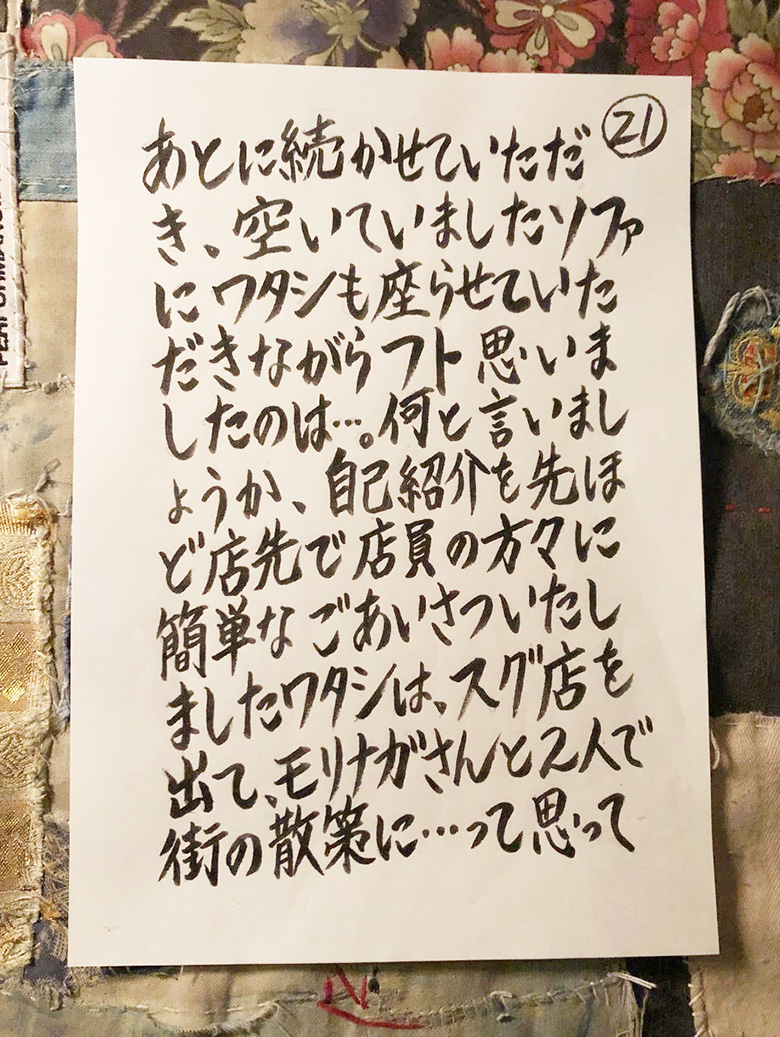 21
あとに続かせていただ
き、空いていましたソファ
にワタシも座らせていた
だきながらフト思いま
したのは…。何と言いまし
ょうか、自己紹介を先ほ
ど店先で店員の方々に
簡単なごあいさついたし
ましたワタシは、スグ店を
出て、モリナガさんと2人で
街の散策に…って思って